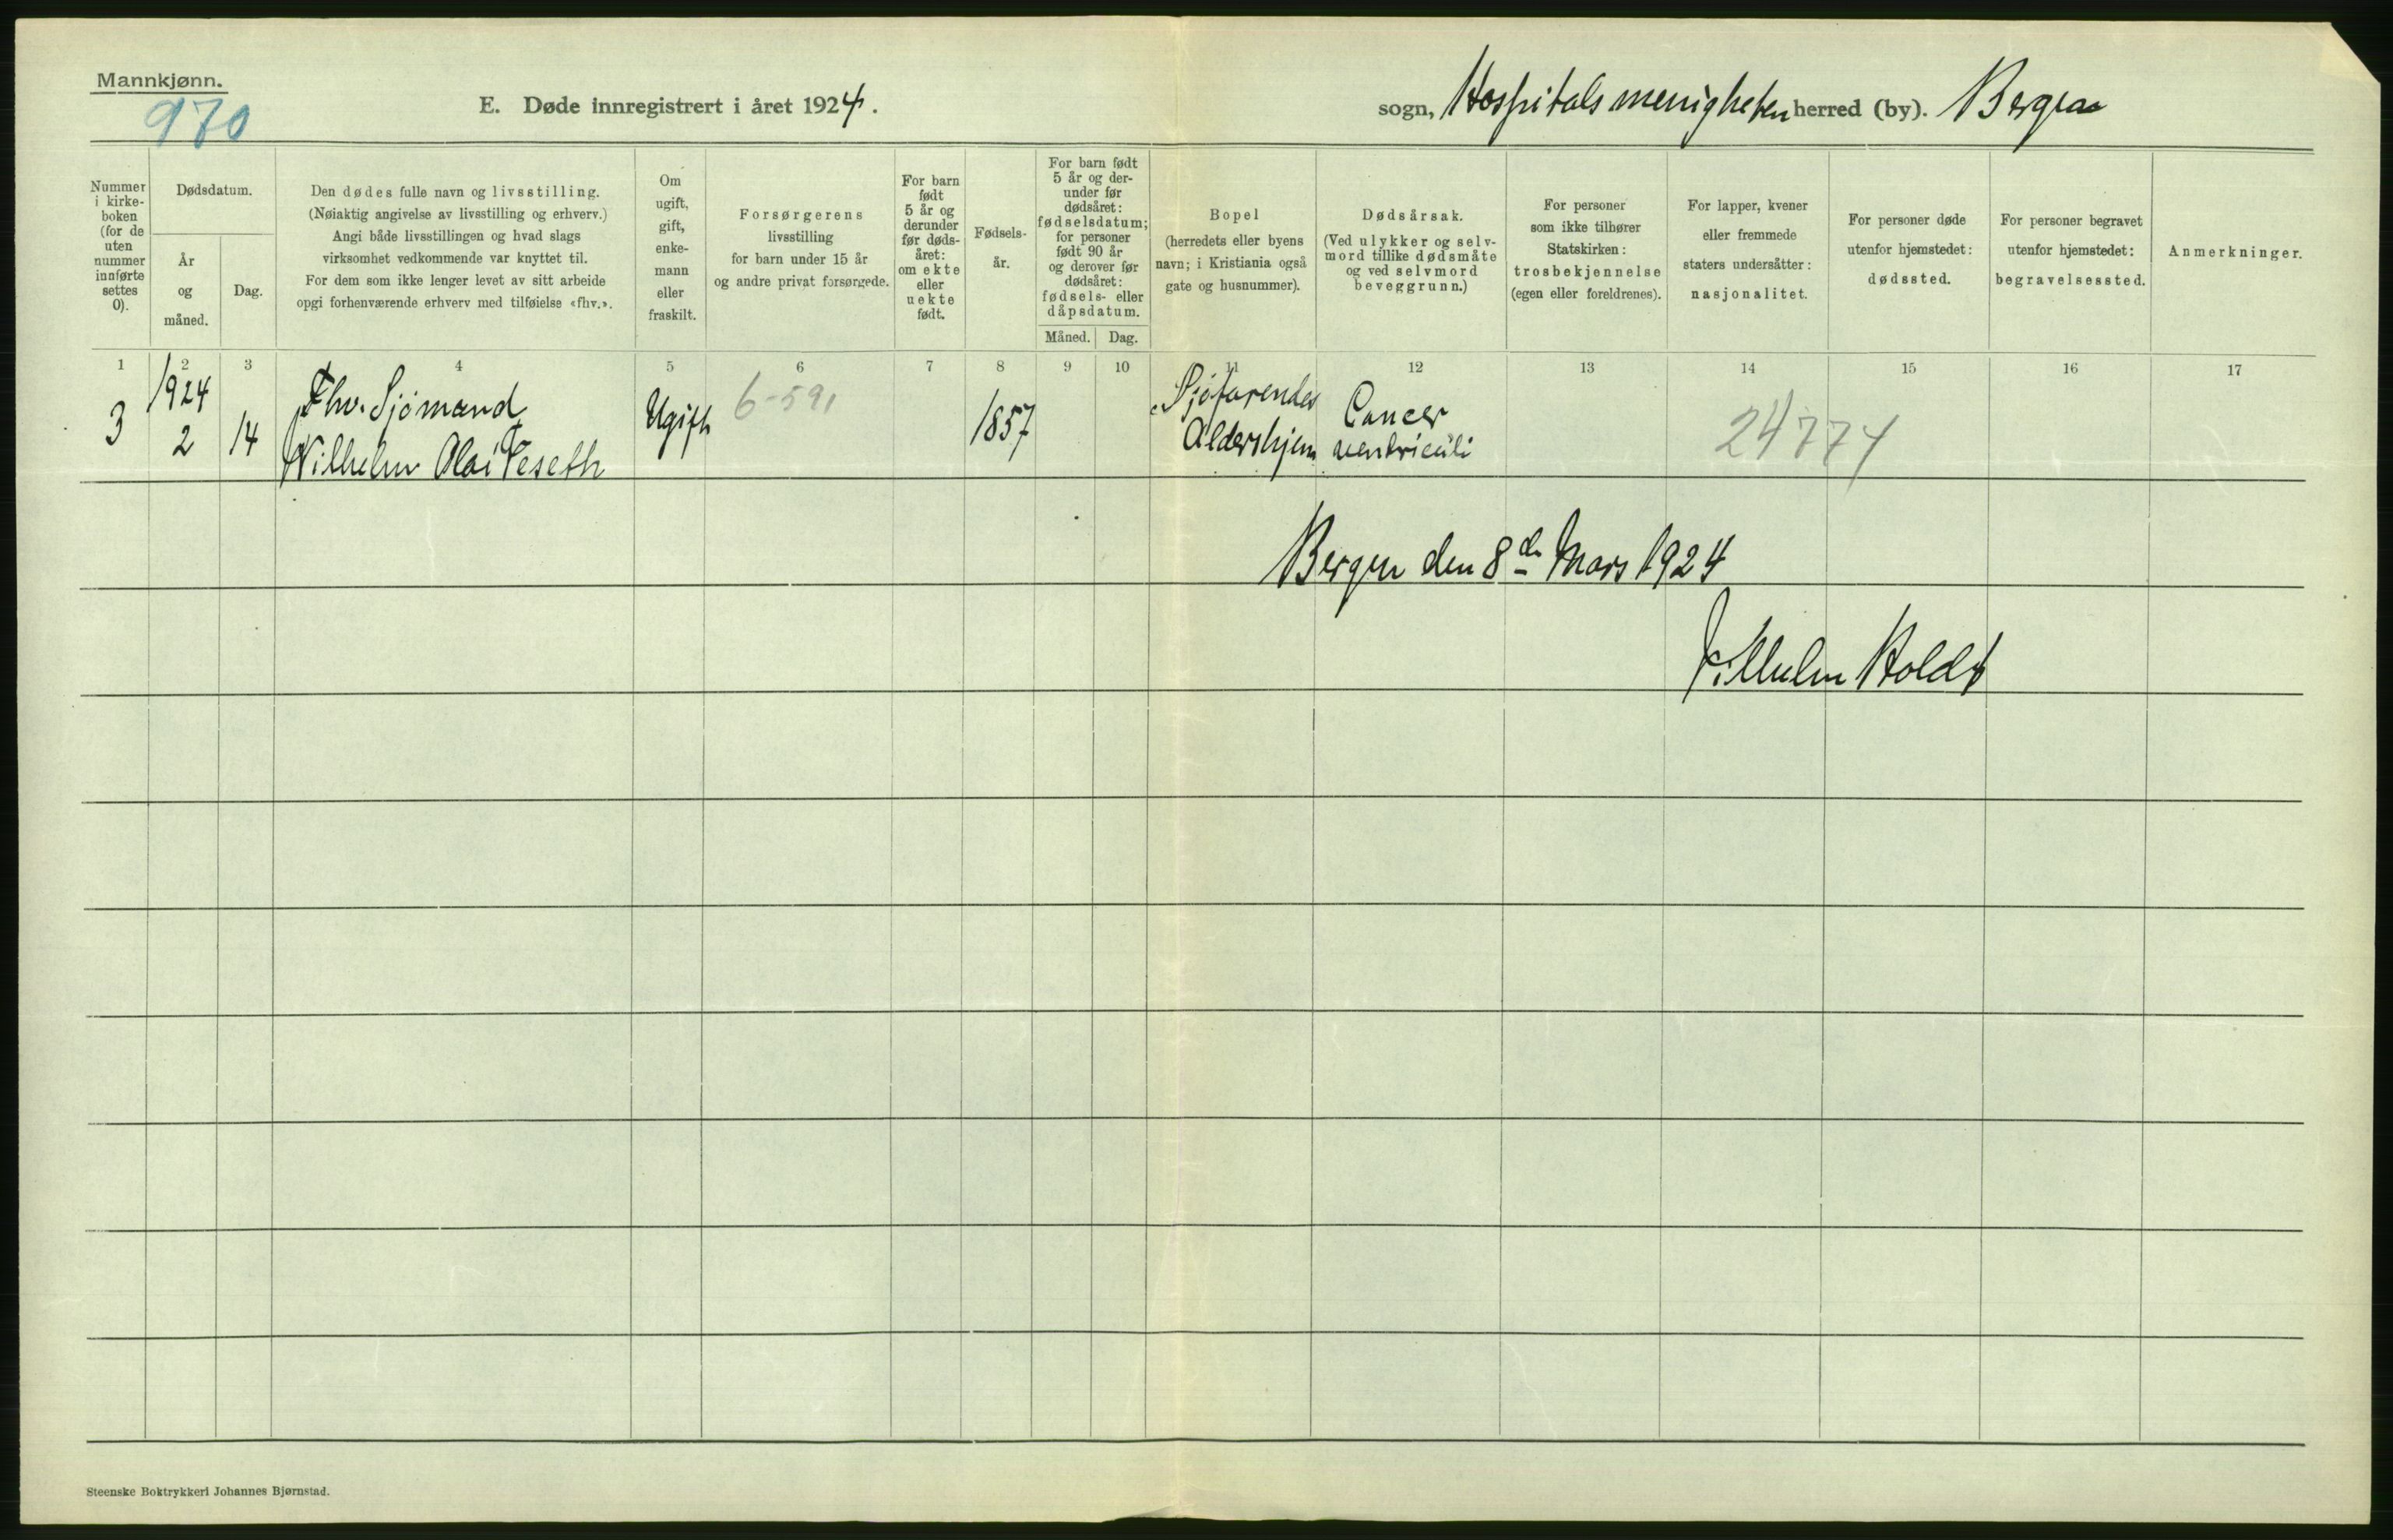 Mannkjønn.
970
E. Døde innregistrert i året 1924.
sogn, Hospitalsmenigheten herred (by). Bergen
Nummer
i kirke-
boken
(for de
uten
nummer
innførte
settes
0).
Dødsdatum.
År
og
måned.
Dag.
Den dødes fulle navn og livsstilling.
(Nøiaktig angivelse av livsstilling og erhverv.)
Angi både livsstillingen og hvad slags
virksomhet vedkommende var knyttet til.
For dem som ikke lenger levet av sitt arbeide
opgi forhenværende erhverv med tilføielse «fhv.».
Om
ugift,
gift,
enke-
mann
eller
fraskilt.
Forsørgerens
livsstilling
for barn under 15 år
og andre privat forsørgede.
For barn
født
5 år og
derunder
før døds-
året:
om ekte
eller
uekte
født.
Fødsels-
år.
For barn født
5 år og der-
under før
dødsåret:
fødselsdatum;
for personer
født 90 år
og derover før
dødsåret:
fødsels- eller
dåpsdatum.
Måned.
Dag.
Bopel
(herredets eller byens
navn; i Kristiania også
gate og husnummer).
Dødsårsak.
(Ved ulykker og selv-
mord tillike dødsmåte
og ved selvmord
beveggrunn.)
For personer
som ikke tilhører
Statskirken:
trosbekjennelse
(egen eller foreldrenes).
For lapper, kvener
eller fremmede
staters undersåtter:
nasjonalitet.
For personer døde
utenfor hjemstedet:
dødssted.
For personer begravet
utenfor hjemstedet:
begravelsessted.
Anmerkninger.
1 2 3 4 5 6 7 8 9 10 11 12 13 14 15 16 17
1924
3 2 14
Fhv. Sjömand
Wilhelm Olai Teseth
Ugift
6-591
1857
Sjöfarendes
Aldershjem
Cancer
ventriculi
24774
Bergen den 8de Mars 1924
Vilhelm Holdt
Steenske Boktrykkeri Johannes Bjørnstad.